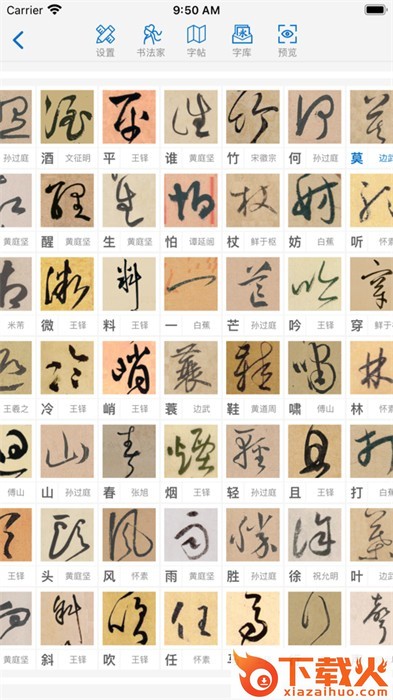 Carrier 9:50 AM
设置 书法家 字帖 字库 预览
孙过庭 酒 文征明 平 王铎 谁 黄庭坚 竹 宋徽宗 何 孙过庭 莫 边武
黄庭坚 醒 黄庭坚 生 黄庭坚 怕 谭延闿 杖 鲜于枢 妨 白蕉 听 怀素
米芾 微 王铎 料 王铎 一 白蕉 芒 孙过庭 吟 王铎 穿 鲜于
王羲之 冷 王铎 峭 王铎 蓑 边武 鞋 黄道周 啸 傅山 林 怀素
傅山 山 孙过庭 春 张旭 烟 王铎 轻 孙过庭 且 王铎 打 白蕉
王铎 头 黄庭坚 风 怀素 雨 黄庭坚 胜 孙过庭 徐 祝允明 叶 边武
黄庭坚 斜 王铎 吹 王铎 任 怀素
下载火
xiazaihuo.com